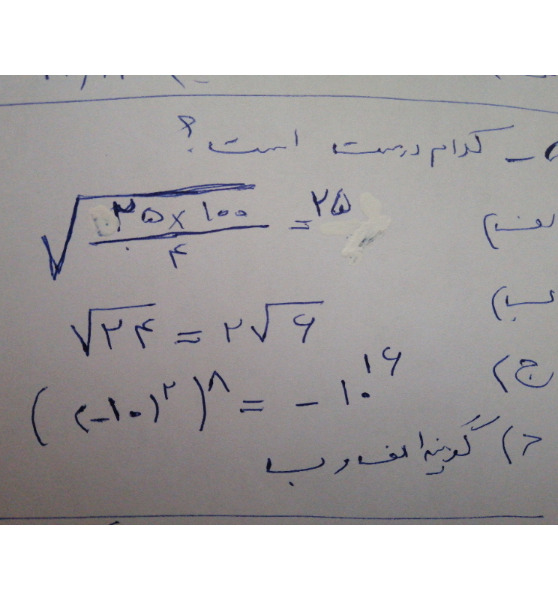 - کدام درست است؟
الف) √(۲۵×۱۰۰/۴) = ۲۵
ب) √۲۴ = ۲√۶
ج) ((-۱۰)^۲)^۸ = -۱۰^۱۶
د) گزینه الف و ب